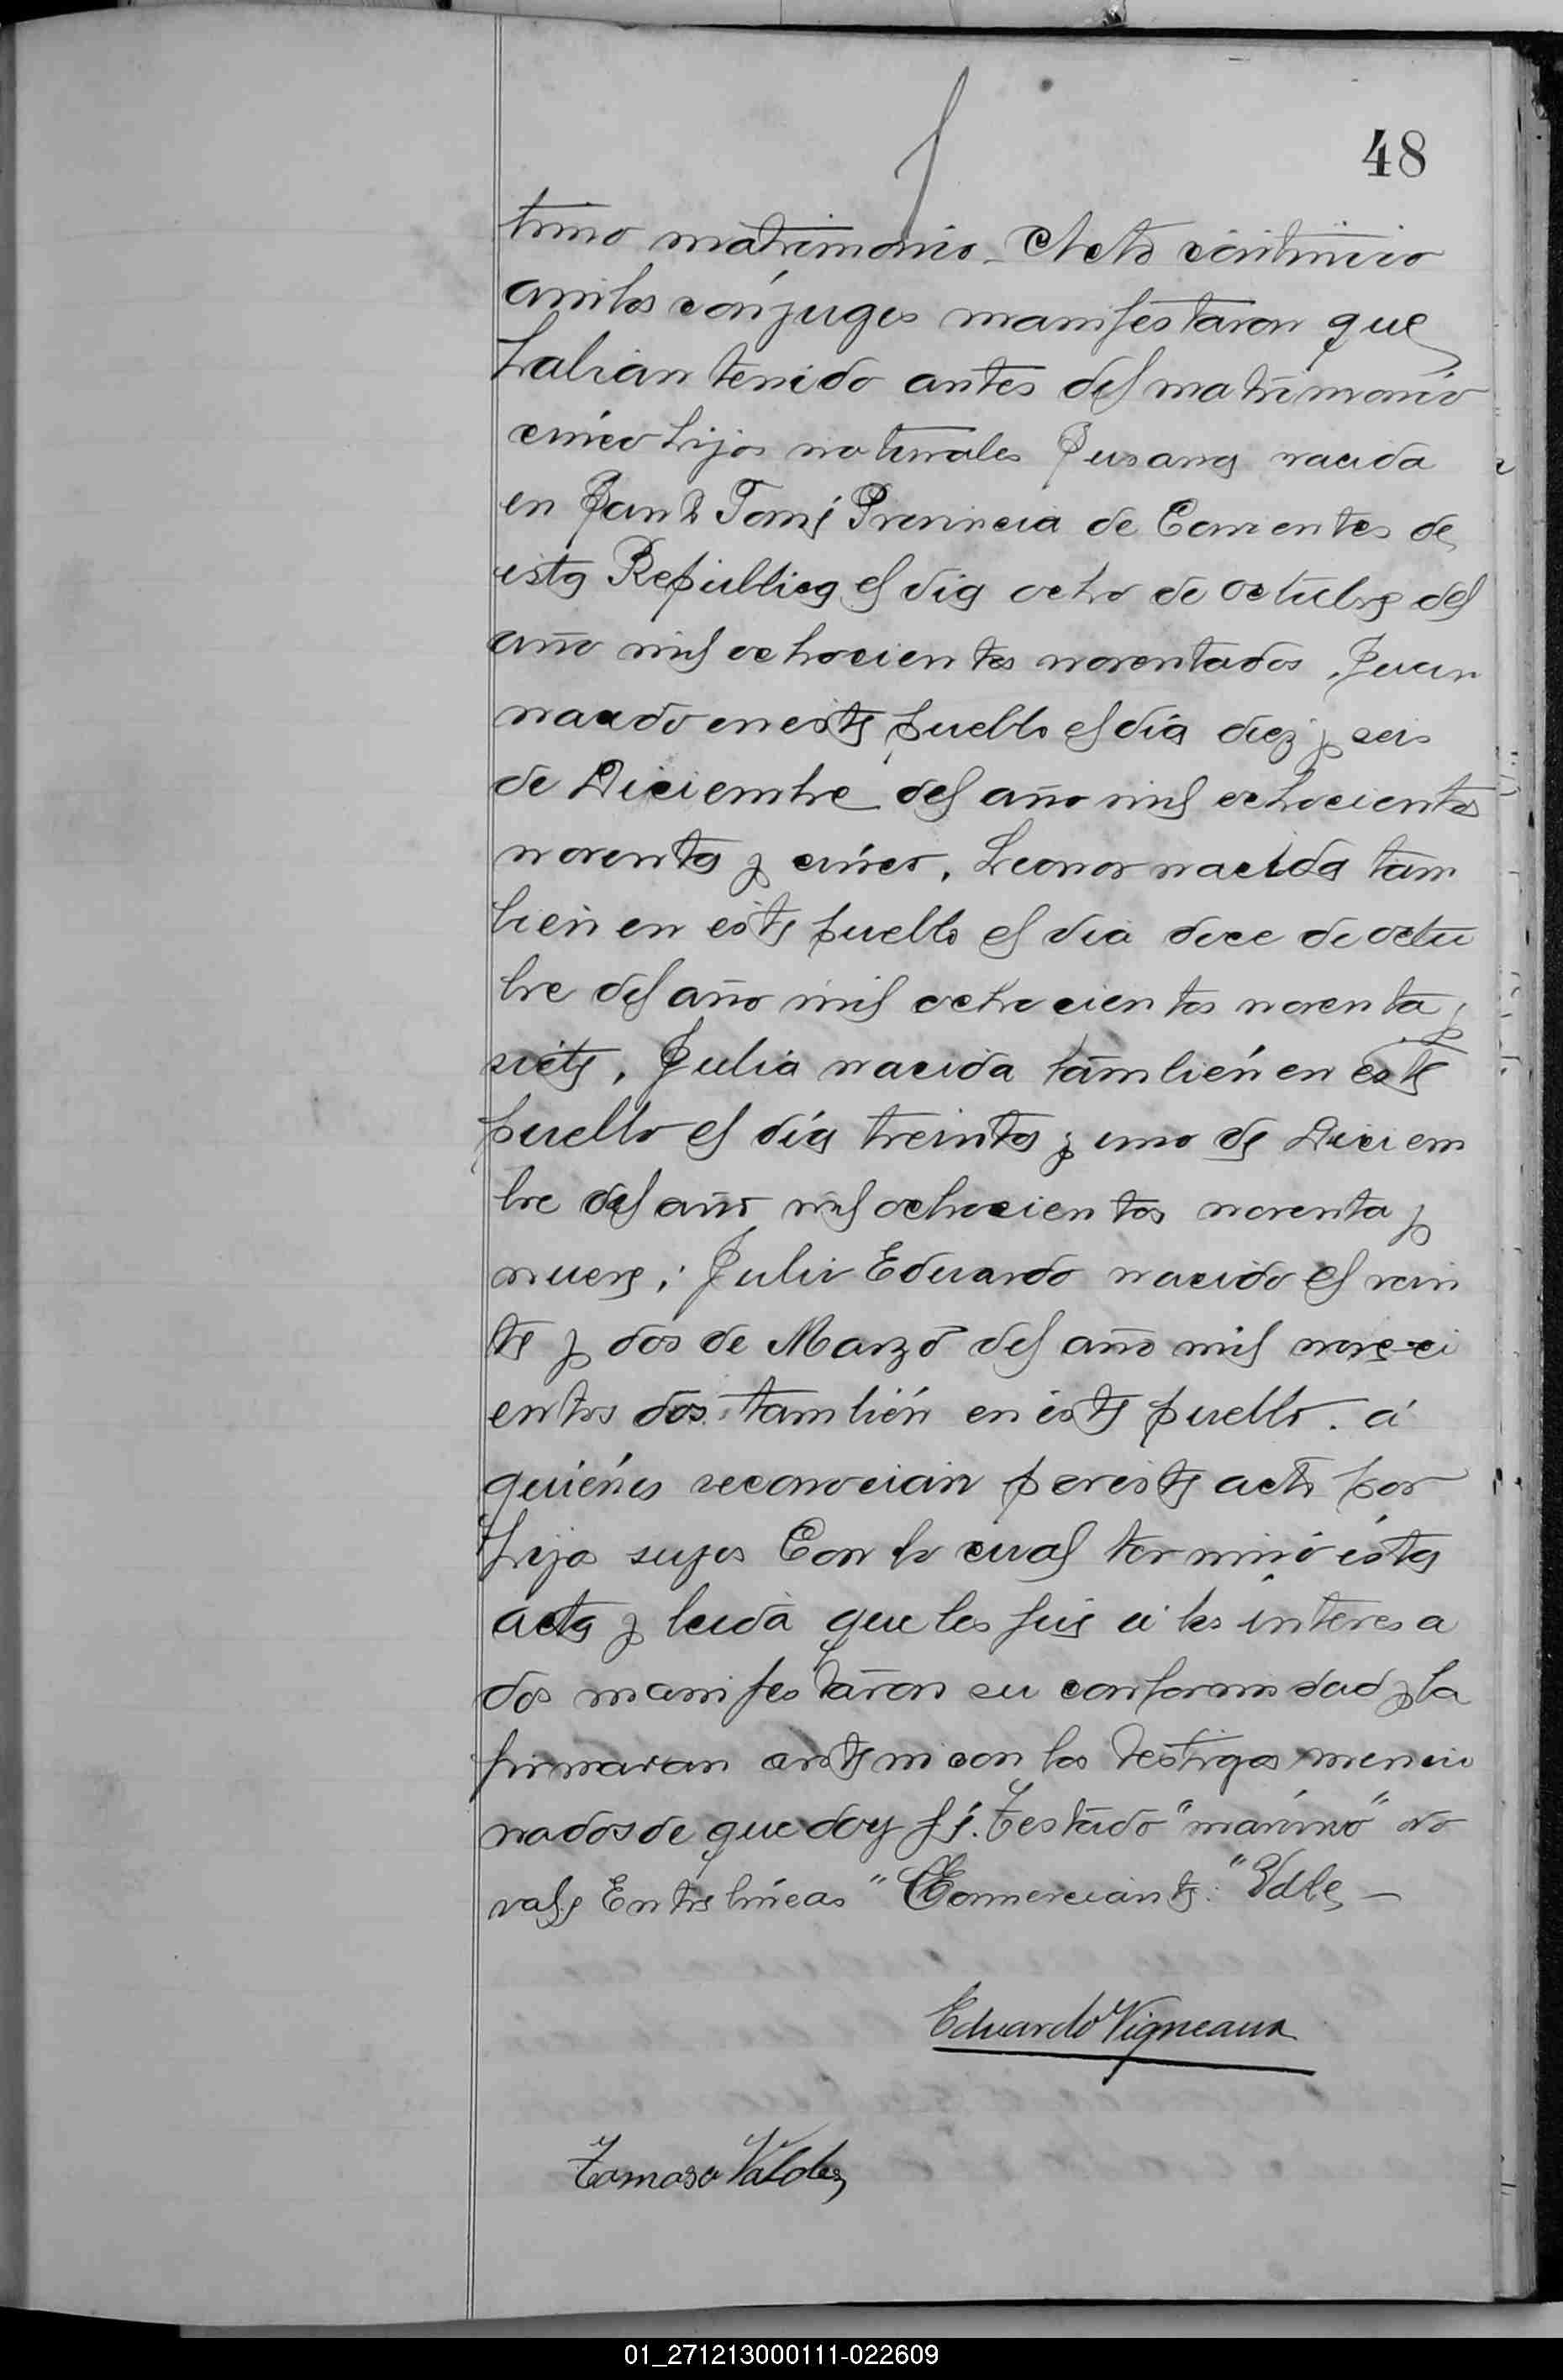 48
timo matrimonio. Acto contínuo
ambos cónjuges manifestaron que
habian tenido antes del matrimonio
cinco hijos naturales Susana nacida
en Santo Tomé Provincia de Corrientes de
esta República el dia ocho de octubre del
año mil ochocientos noventados, Juan
nacido en este pueblo el día diez y seis
de Diciembre del año mil ochocientos
noventa y cinco, Leonor nacida tam
bien en este pueblo el dia doce de octu
bre del año mil ochocientos noventa y
siete, Julia nacida también en este
pueblo el día treinta y uno de Diciem
bre del año mil ochocientos noventa y
nueve; Julio Eduardo nacido el vein
te y dos de Marzo del año mil noveci
entos dos también en este pueblo. á
quiénes reconocian por este acto por
hijos suyos Con lo cual terminó ésta
acta y leida que les fué á los interesa
dos manifestaron su conformidad y la
firmaran ante mi con los testigos mencio
nados de que doy fé. Testado "máximo" no
vale Entre líneas "Comerciante." Vale
Eduardo Vigneaux
Tomasa Valdez
01_271213000111-022609